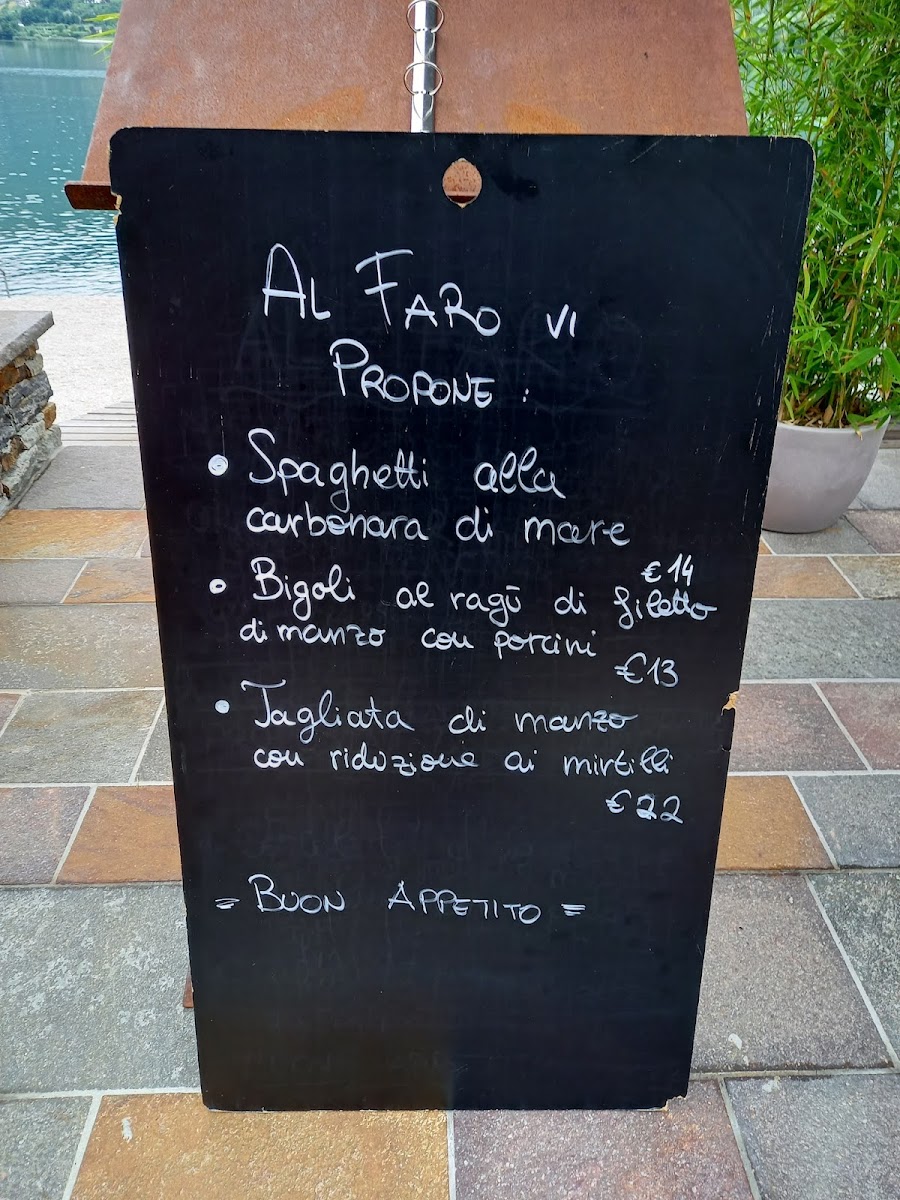 AL FARO VI
PROPONE :
• Spaghetti alla
carbonara di mare
€14
• Bigoli al ragū di filetto
di manzo con porcini
€13
• Tagliata di manzo
con riduzione ai mirtilli
€22
= BUON APPETITO =